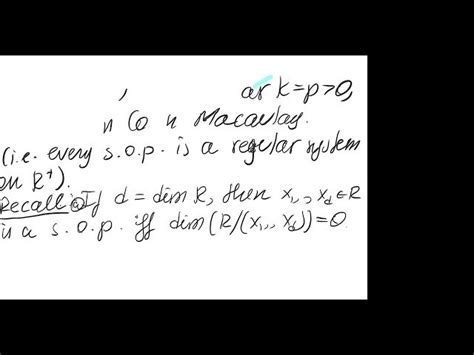 , ar k=p>0,
n Co n Macaulay.
(i.e. every s.o.p. is a regular system
on R⁺).
Recall: If d = dim R, then x₁,., x_d ∈ R
is a s.o.p. iff dim(R/(x₁,., x_d))=0.